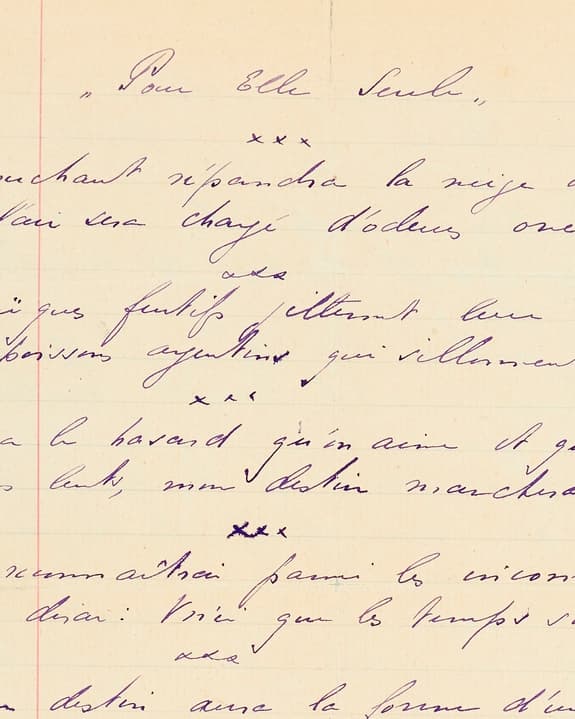 „ Pour Elle Seule „
x x x
uchant répandra la neige
l'air sera chargé d'odeurs
x x x
furtifs jetteront leur
poissons argentins qui sillonnent
x x x
a le hasard qu'on aime et
s lents, mon destin marchera
x x x
reconnaîtrai parmi les
dirai : Voici que les temps s
x x x
destin aura la forme d'un